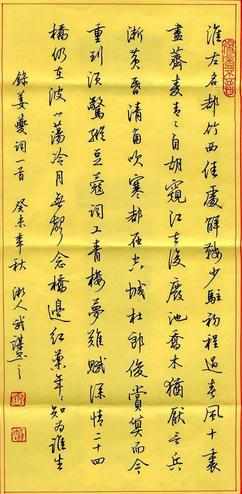 淮左名都竹西佳處解鞍少駐初程過春風十裏
盡薺麥青々自胡窺江去後廢池喬木猶厭言兵
漸黃昏清角吹寒都在空城杜郎俊賞算而今
重到須驚縱豆蔻詞工青樓夢難賦深情二十四
橋仍在波心蕩冷月無聲念橋邊紅藥年々知為誰生
錄姜夔詞一首 癸未年秋 浙人